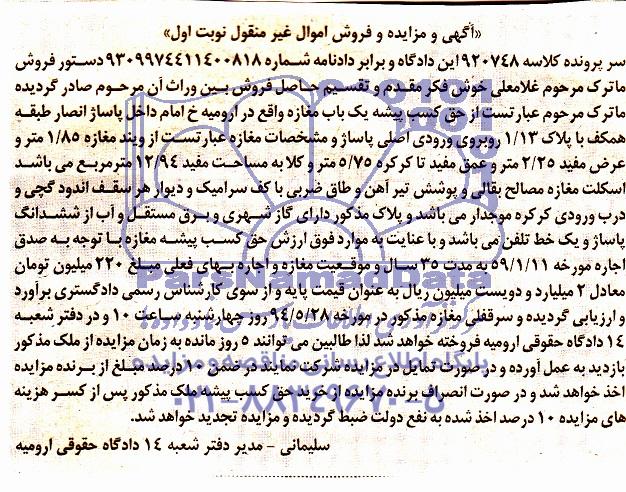 «آگهی و مزایده و فروش اموال غیر منقول نوبت اول»
سر پرونده کلاسه ۹۲۰۷۴۸ این دادگاه و برابر دادنامه شماره ۹۳۰۹۹۷۴۴۱۱۴۰۰۸۱۸ دستور فروش
ماترک مرحوم غلامعلی خوش فکر مقدم و تقسیم حاصل فروش بین وراث آن مرحوم صادر گردیده
ماترک مرحوم عبارتست از حق کسب پیشه یک باب مغازه واقع در ارومیه خ امام داخل پاساژ انصار طبقه
همکف با پلاک ۱/۱۳ روبروی ورودی اصلی پاساژ و مشخصات مغازه عبارتست از ویند مغازه ۱/۸۵ متر و
عرض مفید ۲/۲۵ متر و عمق مفید تا کرکره ۵/۷۵ متر و کلا به مساحت مفید ۱۲/۹۴ مترمربع می باشد
اسکلت مغازه مصالح بقالی و پوشش تیر آهن و طاق ضربی با کف سرامیک و دیوار هر سقف اندود گچی و
درب ورودی کرکره موجدار می باشد و پلاک مذکور دارای گاز شهری و برق مستقل و آب از ششدانگ
پاساژ و یک خط تلفن می باشد و با عنایت به موارد فوق ارزش حق کسب پیشه مغازه با توجه به صدق
اجاره مورخه ۵۹/۱/۱۱ به مدت ۳۵ سال و موقعیت مغازه و اجاره بهای فعلی مبلغ ۲۲۰ میلیون تومان
معادل ۲ میلیارد و دویست میلیون ریال به عنوان قیمت پایه و از سوی کارشناس رسمی دادگستری برآورد
و ارزیابی گردیده و سرقفلی مغازه مذکور در مورخه ۹۴/۵/۲۸ روز چهارشنبه ساعت ۱۰ و در دفتر شعبه
۱۴ دادگاه حقوقی ارومیه فروخته خواهد شد لذا طالبین می توانند ۵ روز مانده به زمان مزایده از ملک مذکور
بازدید به عمل آورده و در صورت تمایل در مزایده شرکت نمایند در ضمن ۱۰ درصد مبلغ از برنده مزایده
اخذ خواهد شد و در صورت انصراف برنده مزایده از خرید حق کسب پیشه ملک مذکور پس از کسر هزینه
های مزایده ۱۰ درصد اخذ شده به نفع دولت ضبط گردیده و مزایده تجدید خواهد شد.
سلیمانی - مدیر دفتر شعبه ۱۴ دادگاه حقوقی ارومیه
ParsNamadData
پایگاه اطلاع رسانی مناقصه و مزایده